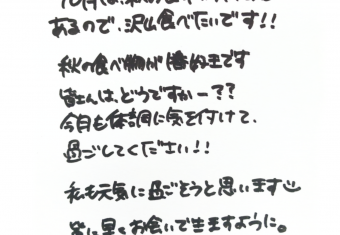 10月は、秋の
あるので、沢山食べたいです！！
秋の食べ物が1番好きです
皆さんは、どうですかー？？
今月も体調に気を付けて、
過ごしてください！！
私も元気に過ごそうと思います
皆に早くお会いできますように。